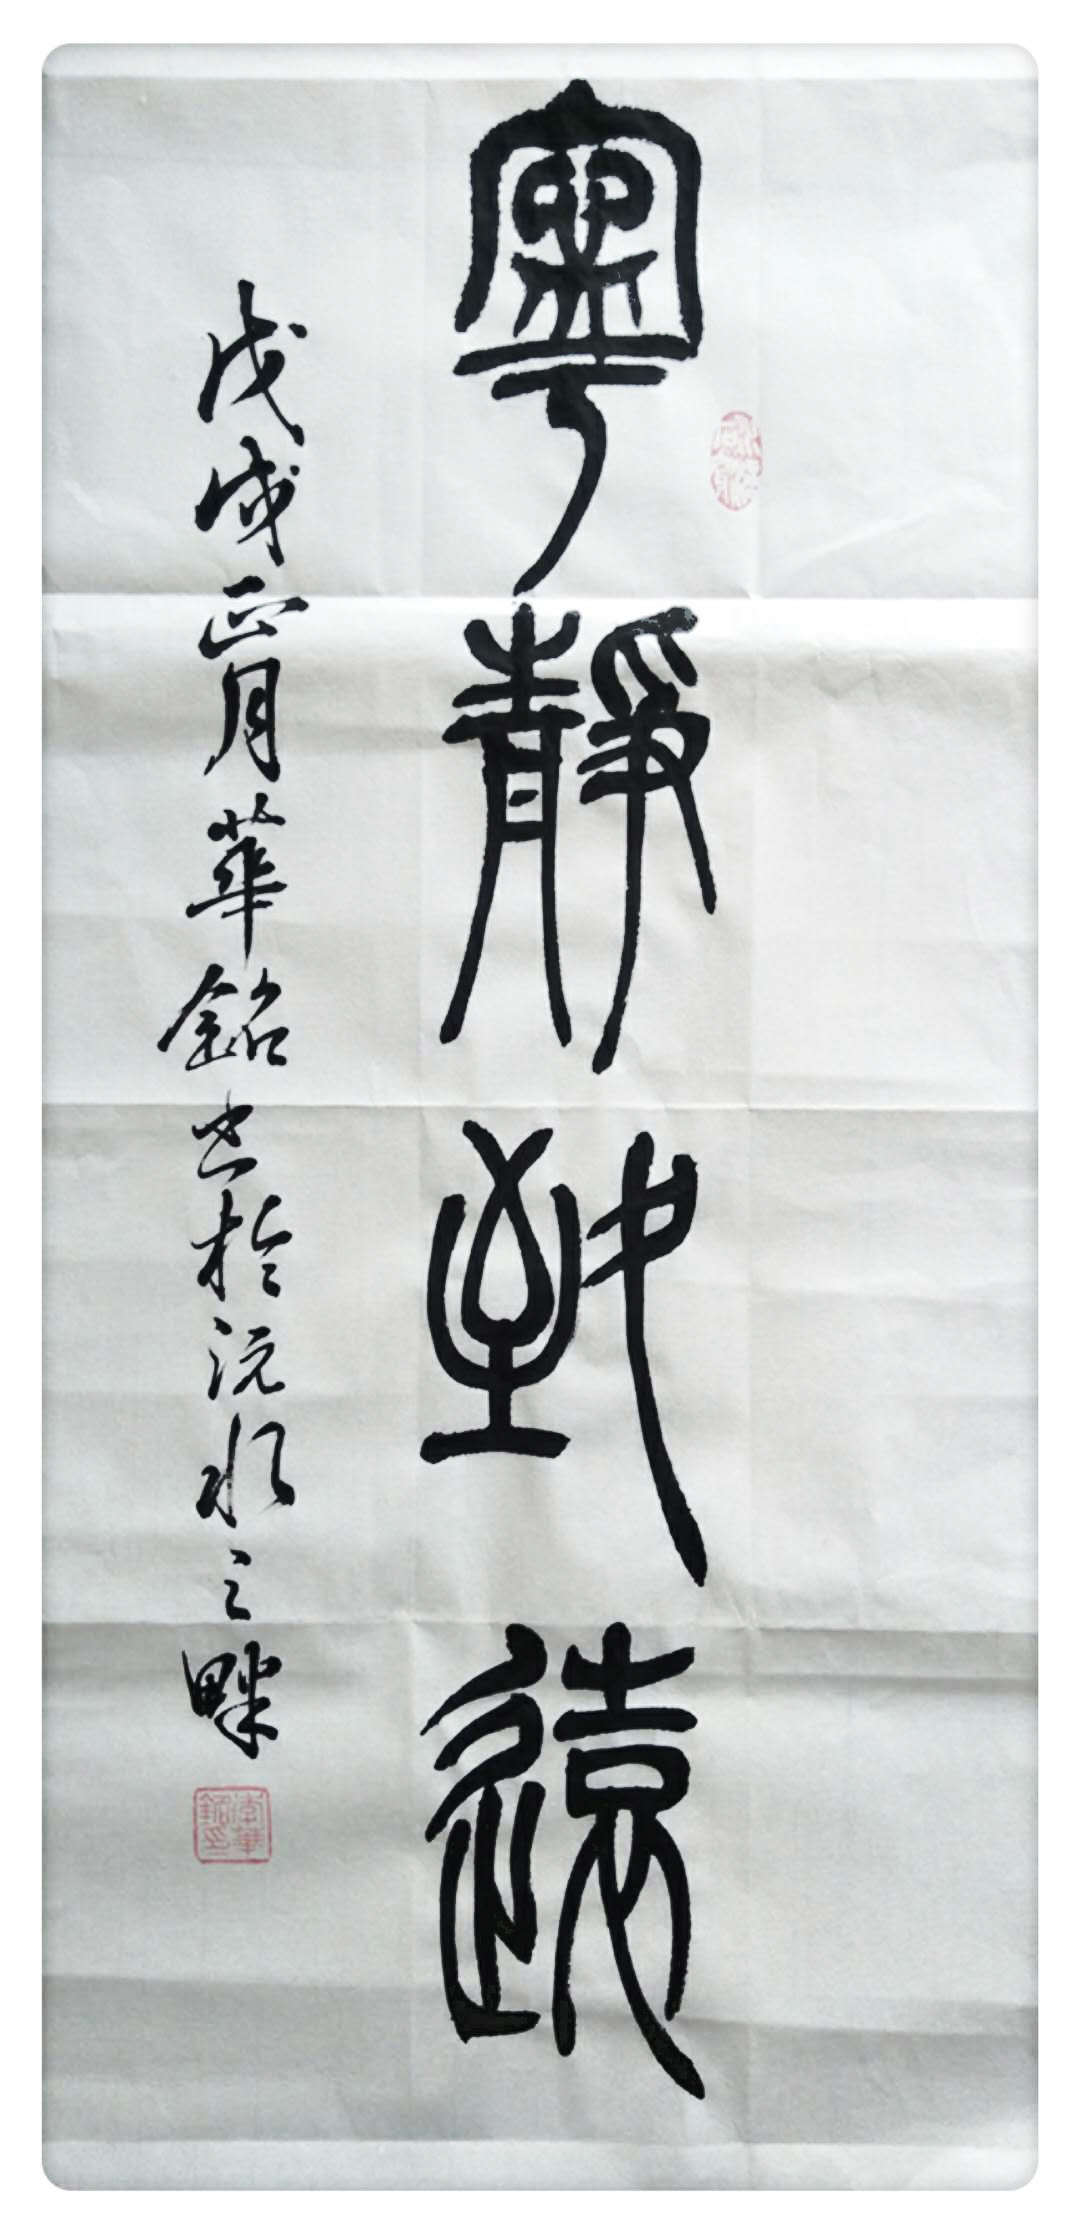 寧靜致遠
戊戌正月華銘书於沅水之畔
李華銘印